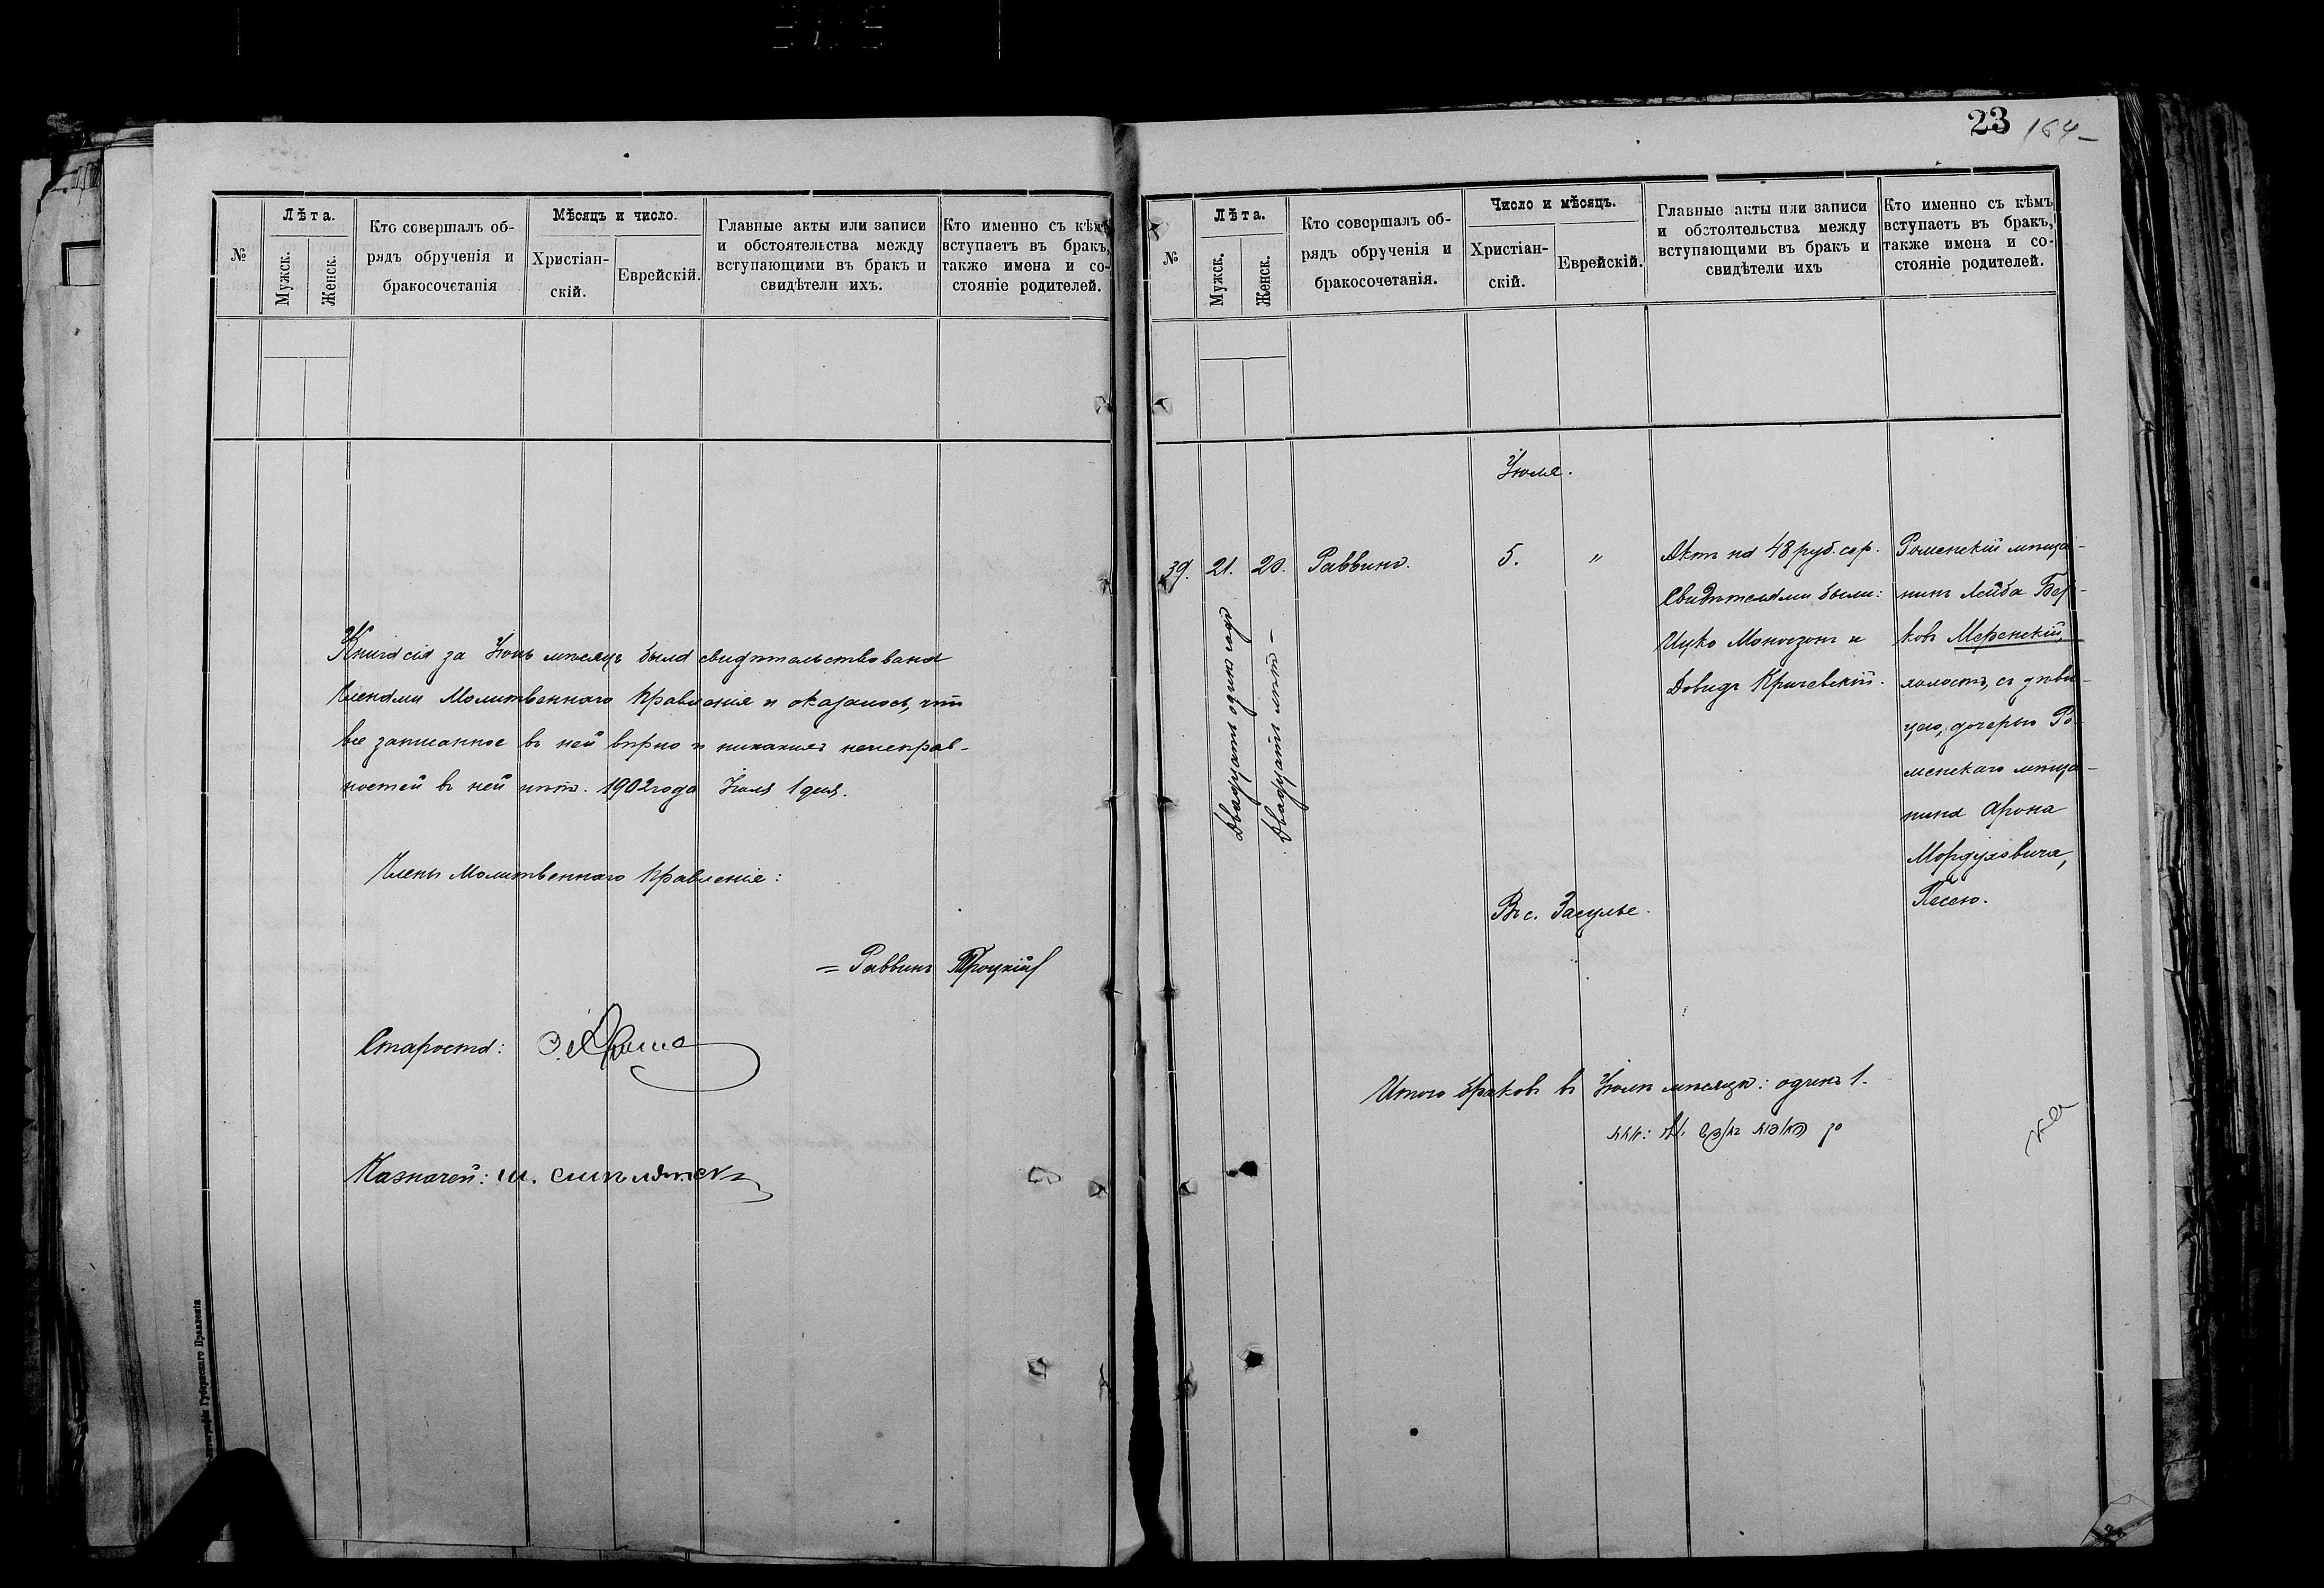 №
Лѣта.
Мужск.
Женск.
Кто совершалъ об-
рядъ обрученія и
бракосочетанія
Мѣсяцъ и число.
Христіан-
скій.
Еврейскій.
Главные акты или записи
и обстоятельства между
вступающими въ бракъ и
свидѣтели ихъ.
Кто именно съ кѣмъ
вступаетъ въ бракъ,
также имена и со-
стояніе родителей.
Книга сія за Іюнь мѣсяцъ была свидѣтельствована
Членами Молитвеннаго Правленія и оказалось, что
все записанное въ ней вѣрно и никакихъ неисправ-
ностей въ ней нѣтъ. 1902 года Іюля 1 дня.
Члены Молитвеннаго Правленія:
= Раввинъ Троцкій
Староста:
Казначей: Ш.
Губернскаго Правленія
23 164
№
Лѣта.
Мужск.
Женск.
Кто совершалъ об-
рядъ обрученія и
бракосочетанія.
Число и мѣсяцъ.
Христіан-
скій.
Еврейскій.
Главные акты или записи
и обстоятельства между
вступающими въ бракъ и
свидѣтели ихъ
Кто именно съ кѣмъ
вступаетъ въ бракъ,
также имена и со-
стояніе родителей.
Іюля.
39. 21. 20. Раввинъ. 5. "
Двадцать одинъ годъ
Двадцать лѣтъ
Актъ на 48 руб. сер.
Свидѣтелями были:
Ицко Моногзонъ и
Довидъ Кричевскій.
Роменскій мѣща-
нинъ Лейба Бер-
ковъ Меренскій,
холостъ, съ дѣви-
цею, дочерью Ро-
менскаго мѣща-
нина Арона
Мордуховича,
Песею.
Въ с. Засулье.
Итого браковъ въ Іюлѣ мѣсяцѣ: одинъ 1.